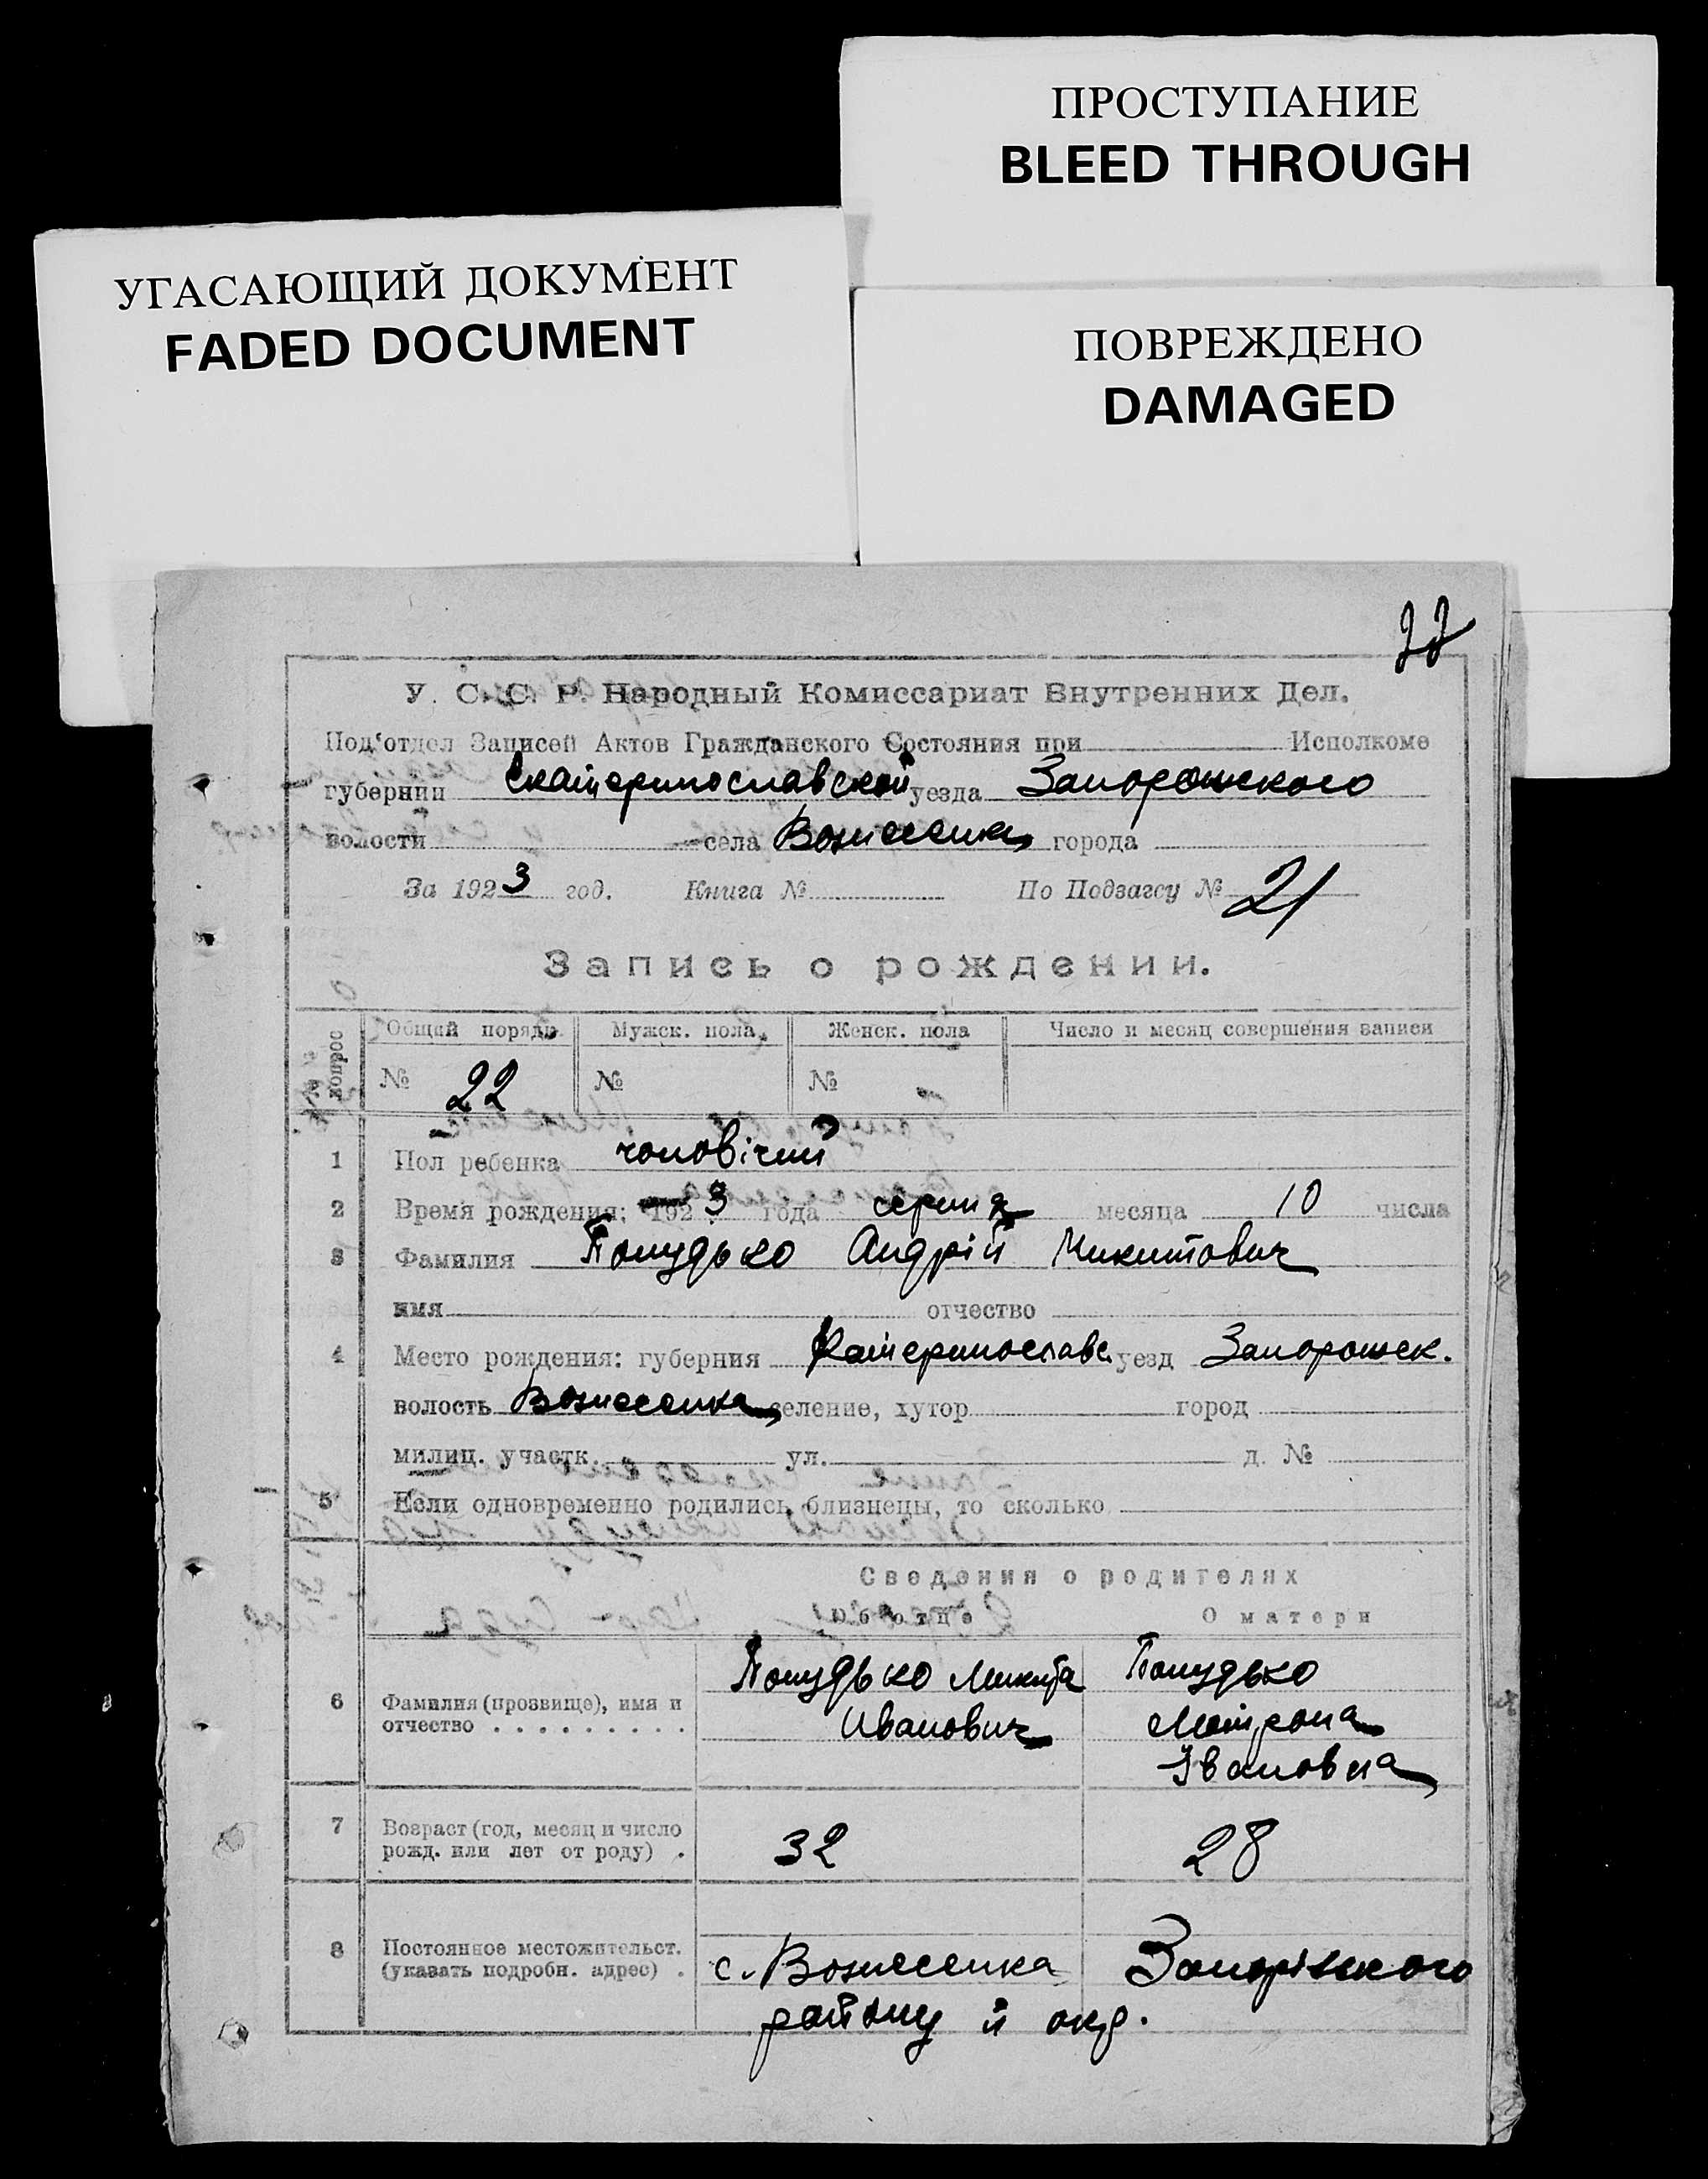 ПРОСТУПАНИЕ
BLEED THROUGH
УГАСАЮЩИЙ ДОКУМЕНТ
FADED DOCUMENT
ПОВРЕЖДЕНО
DAMAGED
У. С. С. Р. Народный Комиссариат Внутренних Дел.
Под‘отдел Записей Актов Гражданского Состояния при Исполкоме
губернии Екатеринославской уезда Запорошского
волости села Вознесенка города
За 1923 год. Книга № По Подзагсу № 21
Запись о рождении.
№ вопрос Общий порядк. Мужск. пола Женск. пола Число и месяц совершения записи
№ 22 № №
1 Пол ребенка чоловічий
2 Время рождения: 1923 года серпня месяца 10 числа
3 Фамилия Андрій Микитович
имя отчество
4 Место рождения: губерния Катеринославс. уезд Запорошск.
волость Вознесенка селение, хутор город
милиц. участк. ул. д. №
5 Если одновременно родились близнецы, то сколько
Сведения о родителях
Об отце О матери
6 Фамилия (прозвище), имя и отчество Микита Иванович Мотрона Івановна
7 Возраст (год, месяц и число рожд. или лет от роду) 32 28
8 Постоянное местожительст. (указать подробн. адрес) с. Вознесенка Запоріжского
району й окр.